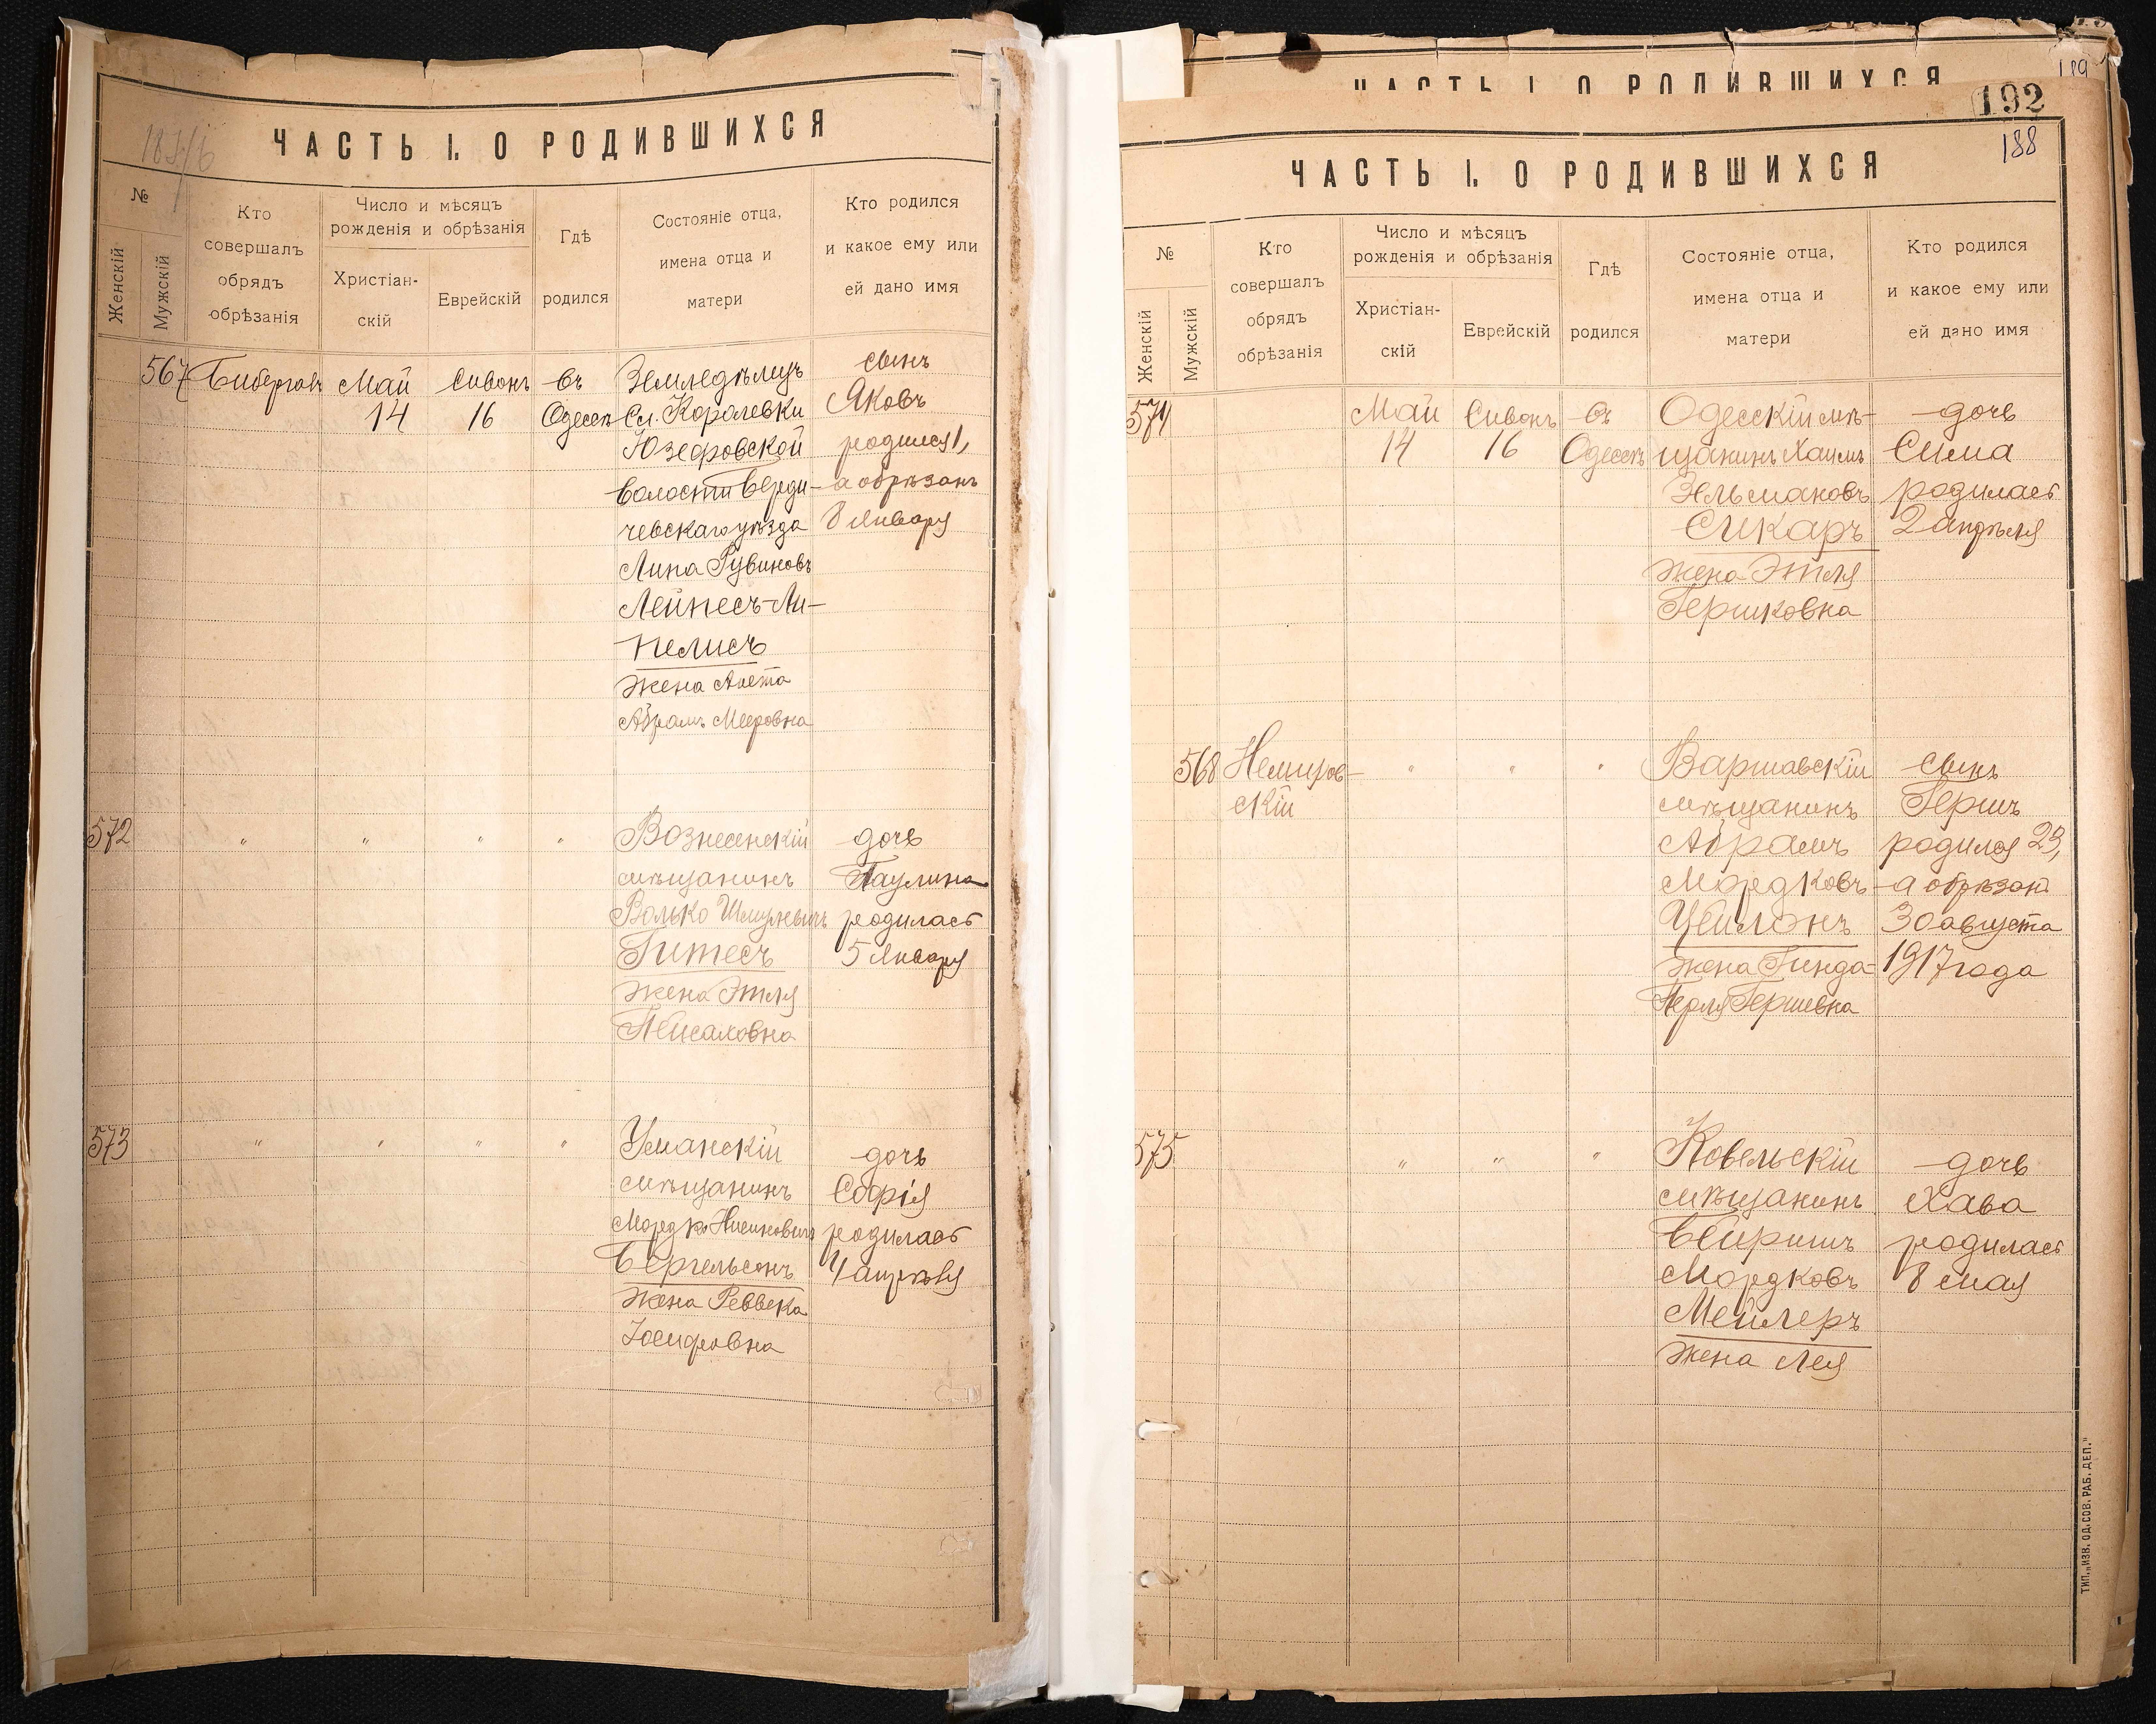 ЧАСТЬ I. О РОДИВШИХСЯ
№
Женскій
Мужскій
Кто
совершалъ
обрядъ
обрѣзанія
Число и мѣсяцъ
рожденія и обрѣзанія
Христіан-
скій
Еврейскій
Гдѣ
родился
Состояніе отца,
имена отца и
матери
Кто родился
и какое ему или
ей дано имя
567
Май
14
Сивонъ
16
въ
Одессѣ
Земледѣлецъ
Сл. Королевки
Юзефовской
волости Верди-
чевскаго уѣзда
Липа Рувиновъ
Лейпесъ-Ли-
пелисъ
жена
Абрамъ Мееровна
сынъ
Яковъ
родился 1,
а обрѣзанъ
8 Января
572
" " " "
Вознесенскій
мѣщанинъ
Волько
Гитесъ
жена Этля
Пейсаховна
дочь
Паулина
родилась
5 Января
573
" " " "
Уманскій
мѣщанинъ
Мордко
Бергельсонъ
жена Реввека
Іосифовна
дочь
Софія
родилась
4 апрѣля
192
189
188
ЧАСТЬ I. О РОДИВШИХСЯ
ЧАСТЬ I. О РОДИВШИХСЯ
№
Женскій
Мужскій
Кто
совершалъ
обрядъ
обрѣзанія
Число и мѣсяцъ
рожденія и обрѣзанія
Христіан-
скій
Еврейскій
Гдѣ
родился
Состояніе отца,
имена отца и
матери
Кто родился
и какое ему или
ей дано имя
574
Май
14
Сивонъ
16
въ
Одессѣ
Одесскій мѣ-
щанинъ Хаимъ
Зельмановъ
Сикаръ
жена Этля
Гершковна
дочь
Сима
родилась
2 апрѣля
568
Немиров-
скій
" " "
Варшавскій
мѣщанинъ
Абрамъ
Мордковъ
Цейлонъ
жена Гинда-
Перля Гершевна
сынъ
Гершъ
родился 23,
а обрѣзанъ
30 августа
1917 года
575
" " "
Ковельскій
мѣщанинъ
Бейришъ
Мордковъ
Мейлеръ
жена Лея
дочь
Хава
родилась
8 мая
ТИП. „ИЗВ. ОД. СОВ. РАБ. ДЕП."